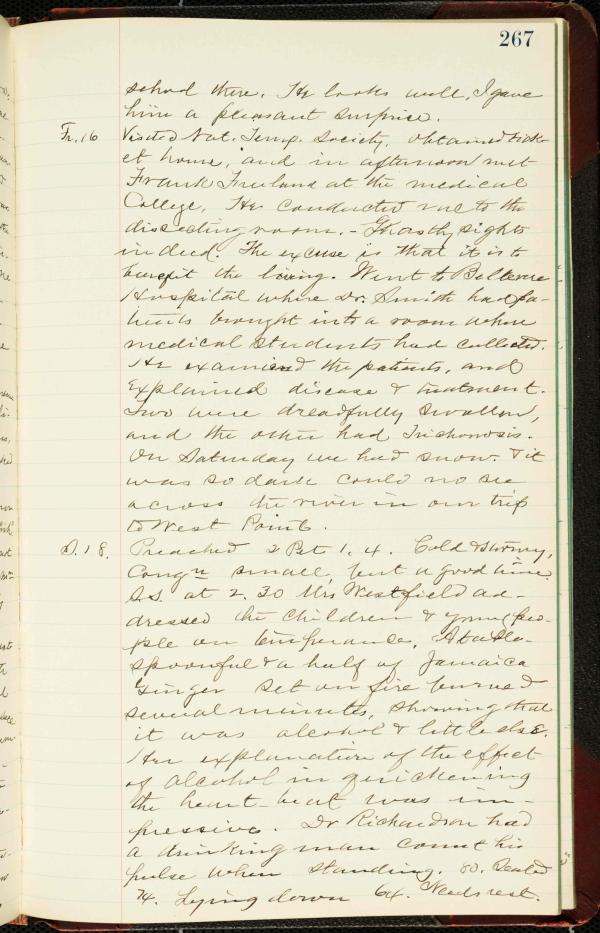 267
school there. He looks well, I gave
him a pleasant surprise.
Fr. 16 Visited Nat. Temp. Society, obtained tick-
et home, and in afternoon met
Frank Freeland at the medical
College. He conducted me to the
dissecting room. - Ghastly sights
indeed. The excuse is that it is to
benefit the living. Went to Bellevue
Hospital where Dr. Smith had pa-
tients brought into a room where
medical students had collected.
He examined the patients, and
explained disease & treatment.
Two were dreadfully swollen,
and the other had Trichonosis.
On Saturday we had snow. & it
was so dark could no see
across the river in our trip
to West Point.
S. 18. Preached 2 Pet 1. 4. Cold & stormy,
Congn small, but a good time.
S.S. at 2.30 Mrs Westfield ad-
dressed the children & young peo-
ple on temperance. A table-
spoonful & a half of Jamaica
Ginger set on fire burned
several minutes, showing that
it was alcohol & little else.
Her explanation of the effect
of alcohol in quickening
the heart-beat was im-
pressive. Dr Richardson had
a drinking man count his
pulse when standing. 80. Seated
74. Lying down 64. Needs rest.